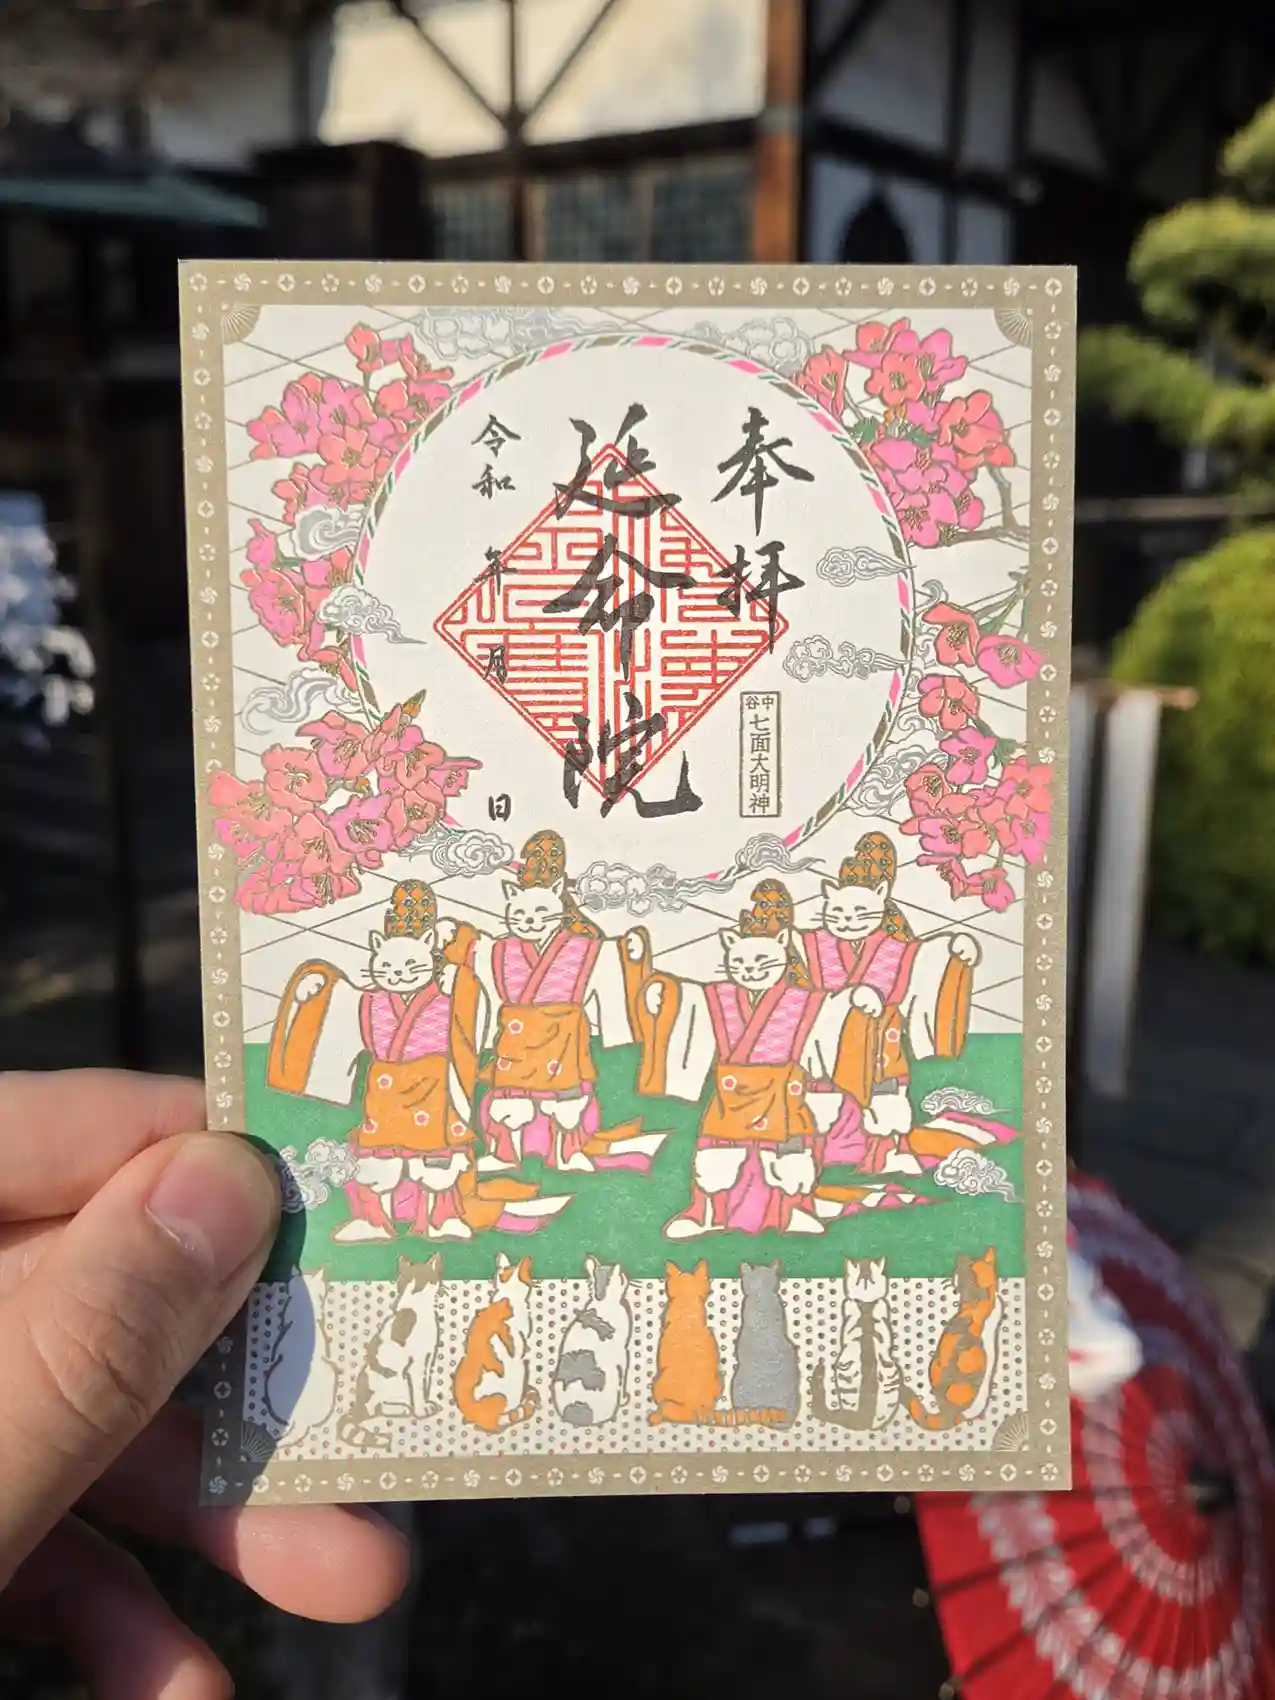 奉拝
中谷
七面大明神
延命院
令和 年 月 日